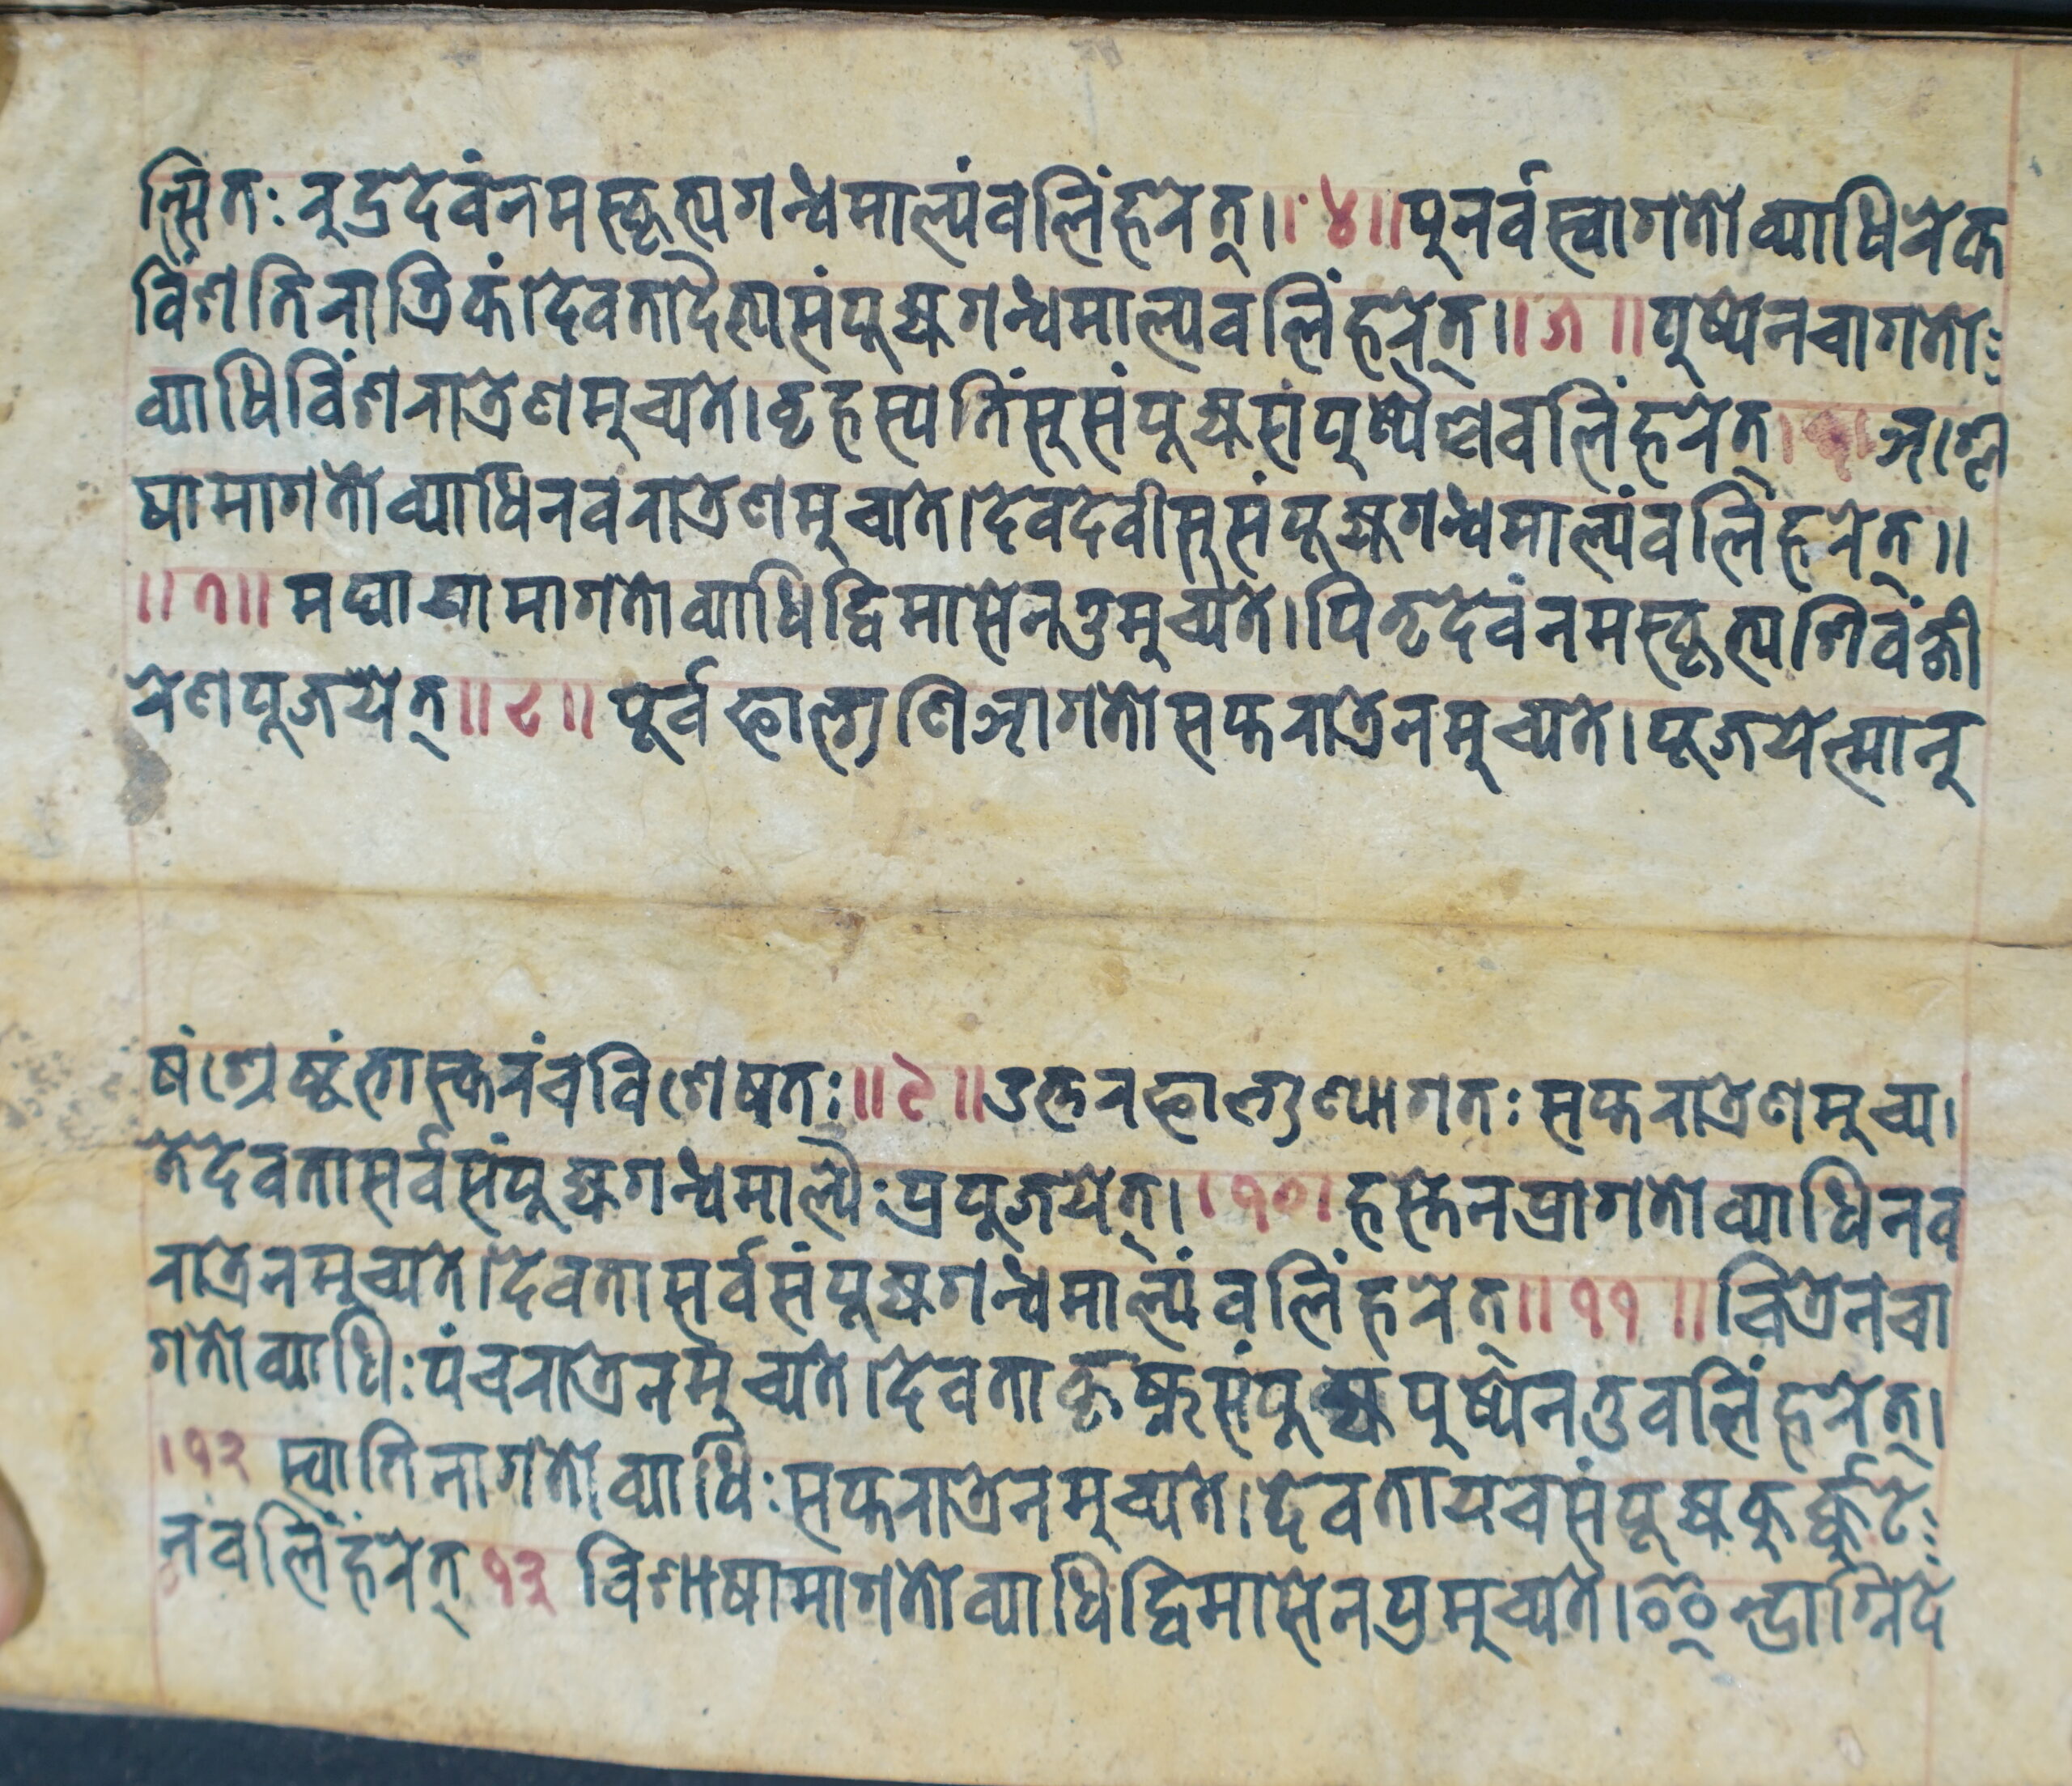 त्सितः रुद्रदेवंनमस्कृत्यगन्धमाल्यंवलिंहरेत्।।४॥पुनर्वस्वागतोव्याधिरेक
विंशतिरात्रिकं।देवतादैत्यसंपूज्यगन्धमाल्यवलिंहरेत्॥५॥पुष्येनचागतोः
व्याधिविंशरात्रेणमुच्यते।वृहस्पतिंसुसंपूज्यसंपुष्पैश्चवलिंहरेत्।६।अश्ले
षामागतोव्याधिनवरात्रेणमुच्यते।देवदेवीसुसंपूज्यगन्धमाल्यंवलिंहरेत्॥
॥७॥मघायामागतोव्याधिद्विमासेनतुमुच्यते।पितृदेवंनमस्कृत्यशिवंक्षी
रेणपूजयेत्॥८॥पूर्वफाल्गुणिआगतोसप्तरात्रेनमुच्यते।पूजयेत्मानु
षंश्रेष्ठंभास्करंचविशेषतः॥९॥उत्तरफाल्गुण्यागतःसप्तरात्रेणमुच्य।
तेदेवतासर्वसंपूज्यगन्धमाल्यैःप्रपूजयेत्।।१०।हस्तेनप्रागतोव्याधिनव
रात्रेनमुच्यते।देवतासर्वसंपूज्यगन्धमाल्यंवलिंहरेत्॥११॥चित्रेनचा
गतोव्याधिःपंचरात्रेनमुच्यते।देवताकृष्णसंपूज्यपुष्पेनतुवलिंहरेत्।
।१२ स्वातिनागतोव्याधिःसप्तरात्रेनमुच्यते।देवतायचसंपूज्यकुर्क्कुटेः
नवलिंहरेत् १३ विशाषामागतोव्याधिद्विमासेनप्रमुच्यते।ऐन्द्राग्निदे